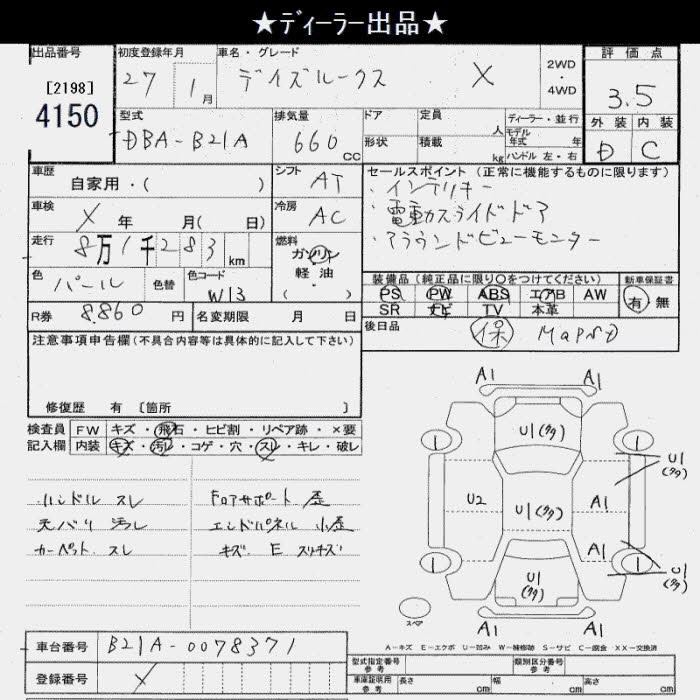 ★ディーラー出品★
出品番号
[2198]
4150
初度登録年月
27 1月
車名・グレード
デイズルークス X
2WD
・
4WD
評価点
3.5
外装 内装
D C
型式
DBA-B21A
排気量
660 CC
ドア
形状
定員 人
積載 kg
ディーラー・並行
モデル年式 年
ハンドル 左・右
車歴
自家用・( )
シフト
AT
車検
X 年 月( 日)
冷房
AC
走行
8万1千283 km
燃料
ガソリン
軽油
( )
色
パール
色替
色コード
W13
R券 8.860 円
名変期限 月 日
セールスポイント (正常に機能するものに限ります)
・インテリキー
・電動スライドドア
・アラウンドビューモニター
装備品 (純正品に限り○をつけてください)
PS PW ABS エアB AW
SR ナビ TV 本革
新車保証書
有 無
後日品
保
注意事項申告欄 (不具合内容等は具体的に記入して下さい)
修復歴 有 [箇所 ]
検査員記入欄
FW キズ・飛石・ヒビ割・リペア跡・×要
内装 キズ・汚レ・コゲ・穴・スレ・キレ・破レ
ハンドル スレ
天バリ 汚レ
カーペット スレ
Fロアサポート 歪
エンドパネル 小歪
キズ E
A1 A1
U1(タタ)
1 1
U1
(タタ)
U2
U1(タタ)
A1
A1
1 1
U1
(タタ)
U1
(タタ)
スペア
A1 A1
A－キズ E－エクボ U－凹み W－補修跡 S－サビ C－腐食 XX－交換済
車台番号 B21A-0078371
登録番号 X
型式指定番号
参考
類別区分番号
参考
車庫証明用
参考
長さ cm 幅 cm 高さ cm